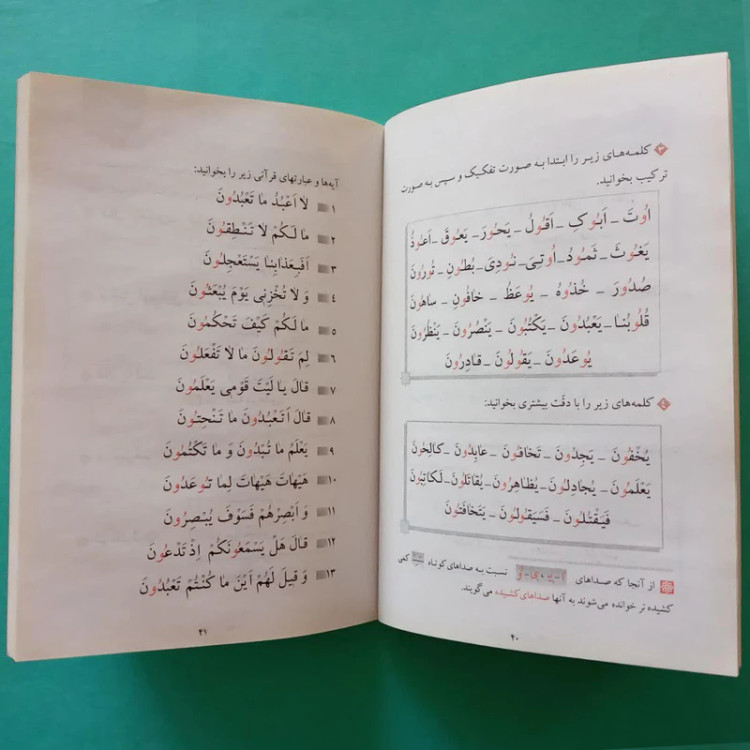 ۳ کلمه‌های زیر را ابتدا به صورت تفکیک و سپس به صورت
ترکیب بخوانید.
اُوتَ ـ اَبُوکِ ـ اَقُولُ ـ یَحُورَ ـ یَعُوقَ ـ اَعُوذُ
یَغُوثَ ـ ثَمُودُ ـ اُوتِیَ ـ نُودِیَ ـ بُطُونِ ـ تُورُونَ
صُدُورَ ـ خُذُوهُ ـ یُوعَظُ ـ خافُونِ ـ ساهُونَ
قُلُوبُنا ـ یَعْبُدُونَ ـ یَکْتُبُونَ ـ یَنْصُرُونَ ـ یَنْظُرُونَ
یُوعَدُونَ ـ یَقُولُونَ ـ قادِرُونَ
۴ کلمه‌های زیر را با دقّت بیشتری بخوانید:
یُخْفُونَ ـ یَجِدُونَ ـ تَخافُونَ ـ عابِدُونَ ـ کالِحُونَ
یَعْلَمُونَ ـ یُجادِلُونَ ـ یُظاهِرُونَ ـ یُقاتَلُونَ ـ لَکاتِبُونَ
فَیَقْتُلُونَ ـ فَسَیَقُولُونَ ـ یَتَخافَتُونَ
از آنجا که صداهای نسبت به صداهای کوتاه کمی
کشیده تر خوانده می‌شوند به آنها صداهای کشیده می‌گویند.
۴۰
آیه‌ها و عبارتهای قرآنی زیر را بخوانید:
۱ لا اَعْبُدُ ما تَعْبُدُونَ
۲ ما لَکُمْ لا تَنْطِقُونَ
۳ اَفَبِعَذابِنا یَسْتَعْجِلُونَ
۴ وَ لا تُخْزِنی یَوْمَ یُبْعَثُونَ
۵ ما لَکُمْ کَیْفَ تَحْکُمُونَ
۶ لِمَ تَقُولُونَ ما لا تَفْعَلُونَ
۷ قالَ یا لَیْتَ قَوْمی یَعْلَمُونَ
۸ قالَ اَتَعْبُدُونَ ما تَنْحِتُونَ
۹ یَعْلَمُ ما تُبْدُونَ وَ ما تَکْتُمُونَ
۱۰ هَیْهاتَ هَیْهاتَ لِما تُوعَدُونَ
۱۱ وَ اَبْصِرْهُمْ فَسَوْفَ یُبْصِرُونَ
۱۲ قالَ هَلْ یَسْمَعُونَکُمْ اِذْ تَدْعُونَ
۱۳ وَ قیلَ لَهُمْ اَیْنَ ما کُنْتُمْ تَعْبُدُونَ
۴۱